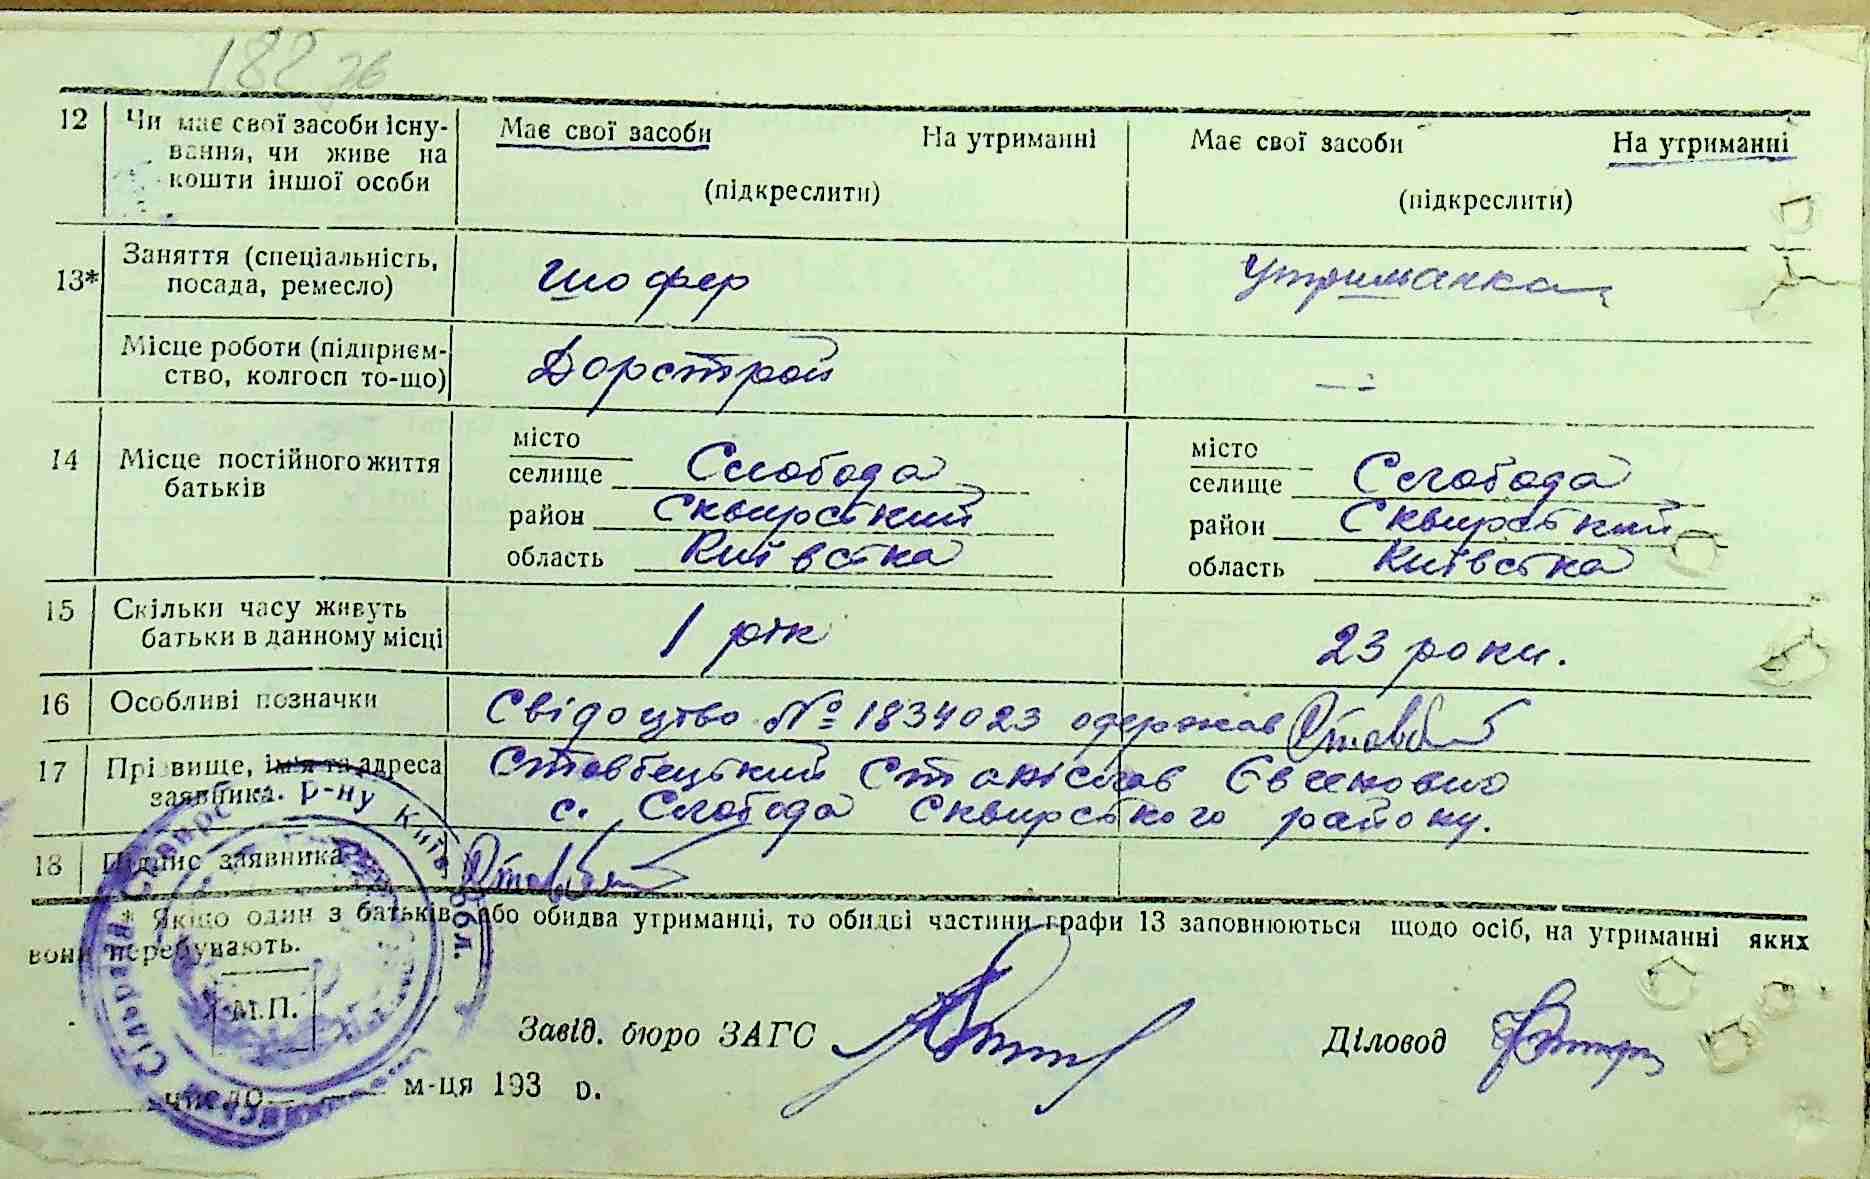 182 зв
12 Чи має свої засоби існу- Має свої засоби На утриманні Має свої засоби На утриманні
вання, чи живе на
кошти іншої особи (підкреслити) (підкреслити)
13* Заняття (спеціальність, шофер утриманка
посада, ремесло)
Місце роботи (підприєм- Дорстрой —
ство, колгосп то-що)
14 Місце постійного життя місто місто
батьків селище Слобода селище Слобода
район Сквирський район Сквирський
область Київська область Київська
15 Скільки часу живуть 1 рік 23 роки.
батьки в данному місці
16 Особливі позначки Свідоцтво № 1834023 одержав
17 Прізвище, ім'я та адреса Стовбецький Станіслав Євгенович
заявника. с. Слобода Сквирського району.
18 Підпис заявника
* Якщо один з батьків або обидва утриманці, то обидві частини графи 13 заповнюються щодо осіб, на утриманні яких
вони перебувають.
М.П.
Завід. бюро ЗАГС Діловод
число м-ця 193 р.
Сквирс р-ну Київ обл.